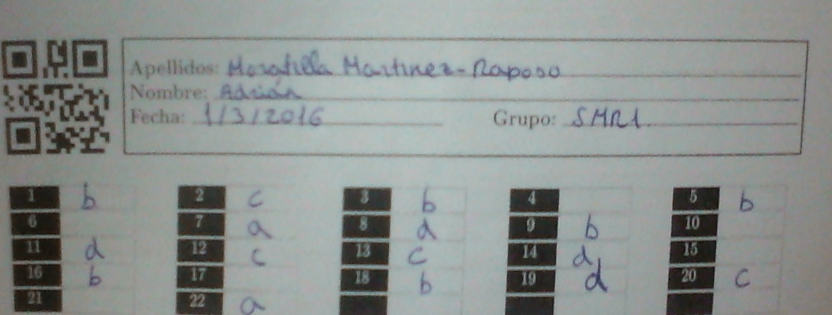 Apellidos: Moratilla Martinez-Raposo
Nombre: Adrián
Fecha: 1/3/2016 Grupo: SMR1
1 b 2 c 3 b 4 5 b
6 7 a 8 d 9 b 10
11 d 12 c 13 c 14 d 15
16 b 17 18 b 19 d 20 c
21 22 a